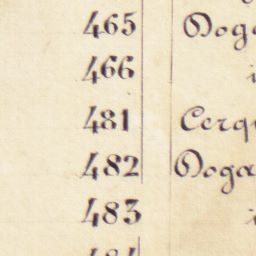 465 Doga
466 i
481 Cerq
482 Doga
483 i
484